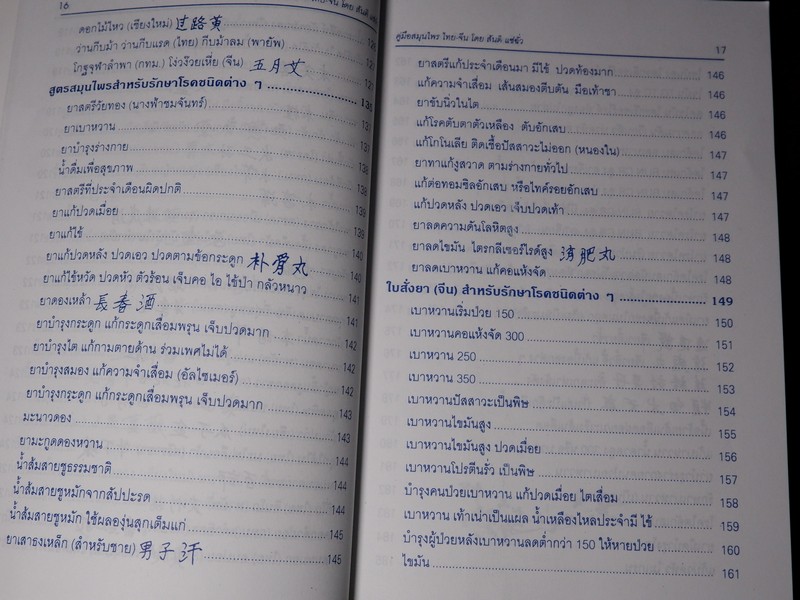 16
ไทย-จีน โดย สันติ แซ่ฉั่ว
ดอกไม้ไหว (เชียงใหม่) 过路黄 126
ว่านกีบม้า ว่านกีบแรด (ไทย) กีบม้าลม (พายัพ)
โกฐจุฬาลำพา (กทม.) โง่วง๊วยเหี่ย (จีน) 五月艾
สูตรสมุนไพรสำหรับรักษาโรคชนิดต่าง ๆ
ยาสตรีวัยทอง (นางฟ้าชมจันทร์)
ยาเบาหวาน 137
ยาบำรุงร่างกาย
น้ำดื่มเพื่อสุขภาพ 138
ยาสตรีที่ประจำเดือนผิดปกติ 138
ยาแก้ปวดเมื่อย 139
ยาแก้ไข้ 139
ยาแก้ปวดหลัง ปวดเอว ปวดตามข้อกระดูก 朴骨丸 140
ยาแก้ไข้หวัด ปวดหัว ตัวร้อน เจ็บคอ ไอ ไข้ป่า กลัวหนาว 140
ยาดองเหล้า 長春酒 141
ยาบำรุงกระดูก แก้กระดูกเสื่อมพรุน เจ็บปวดมาก 141
ยาบำรุงไต แก้กามตายด้าน ร่วมเพศไม่ได้ 142
ยาบำรุงสมอง แก้ความจำเสื่อม (อัลไซเมอร์) 142
ยาบำรุงกระดูก แก้กระดูกเสื่อมพรุน เจ็บปวดมาก 142
มะนาวดอง 143
ยามะกูดดองหวาน 143
น้ำส้มสายชูธรรมชาติ 144
น้ำส้มสายชูหมักจากสัปปะรด 144
น้ำส้มสายชูหมัก ใช้ผลองุ่นสุกเต็มแก่ 144
ยาเสาธงเหล็ก (สำหรับชาย) 男子汗 145
145
คู่มือสมุนไพร ไทย-จีน โดย สันติ แซ่ฉั่ว 17
ยาสตรีแก้ประจำเดือนมา มีไข้ ปวดท้องมาก 146
แก้ความจำเสื่อม เส้นสมองตีบตัน มือเท้าชา 146
ยาขับนิ่วในไต 146
แก้โรคตับตาตัวเหลือง ตับอักเสบ 146
แก้โกโนเลีย ติดเชื้อปัสสาวะไม่ออก (หนองใน) 147
ยาทาแก้งูสวาด ตามร่างกายทั่วไป 147
แก้ต่อทอมซิลอักเสบ หรือไทค์รอยอักเสบ 147
แก้ปวดหลัง ปวดเอว เจ็บปวดเท้า 147
ยาลดความดันโลหิตสูง 148
ยาลดไขมัน ไตรกลีเซอร์ไรด์สูง 消肥丸 148
ยาลดเบาหวาน แก้คอแห้งจัด 148
ใบสั่งยา (จีน) สำหรับรักษาโรคชนิดต่าง ๆ 149
เบาหวานเริ่มป่วย 150 150
เบาหวานคอแห้งจัด 300 151
เบาหวาน 250 152
เบาหวาน 350 153
เบาหวานปัสสาวะเป็นพิษ 154
เบาหวานไขมันสูง 155
เบาหวานไขมันสูง ปวดเมื่อย 156
เบาหวานโปรตีนรั่ว เป็นพิษ 157
บำรุงคนป่วยเบาหวาน แก้ปวดเมื่อย ไตเสื่อม 158
เบาหวาน เท้าเน่าเป็นแผล น้ำเหลืองไหลประจำมี ไข้ 159
บำรุงผู้ป่วยหลังเบาหวานลดต่ำกว่า 150 ให้หายป่วย 160
ไขมัน 161